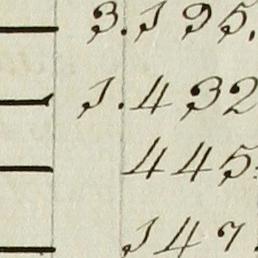 3.195.
1.432
445:
147.